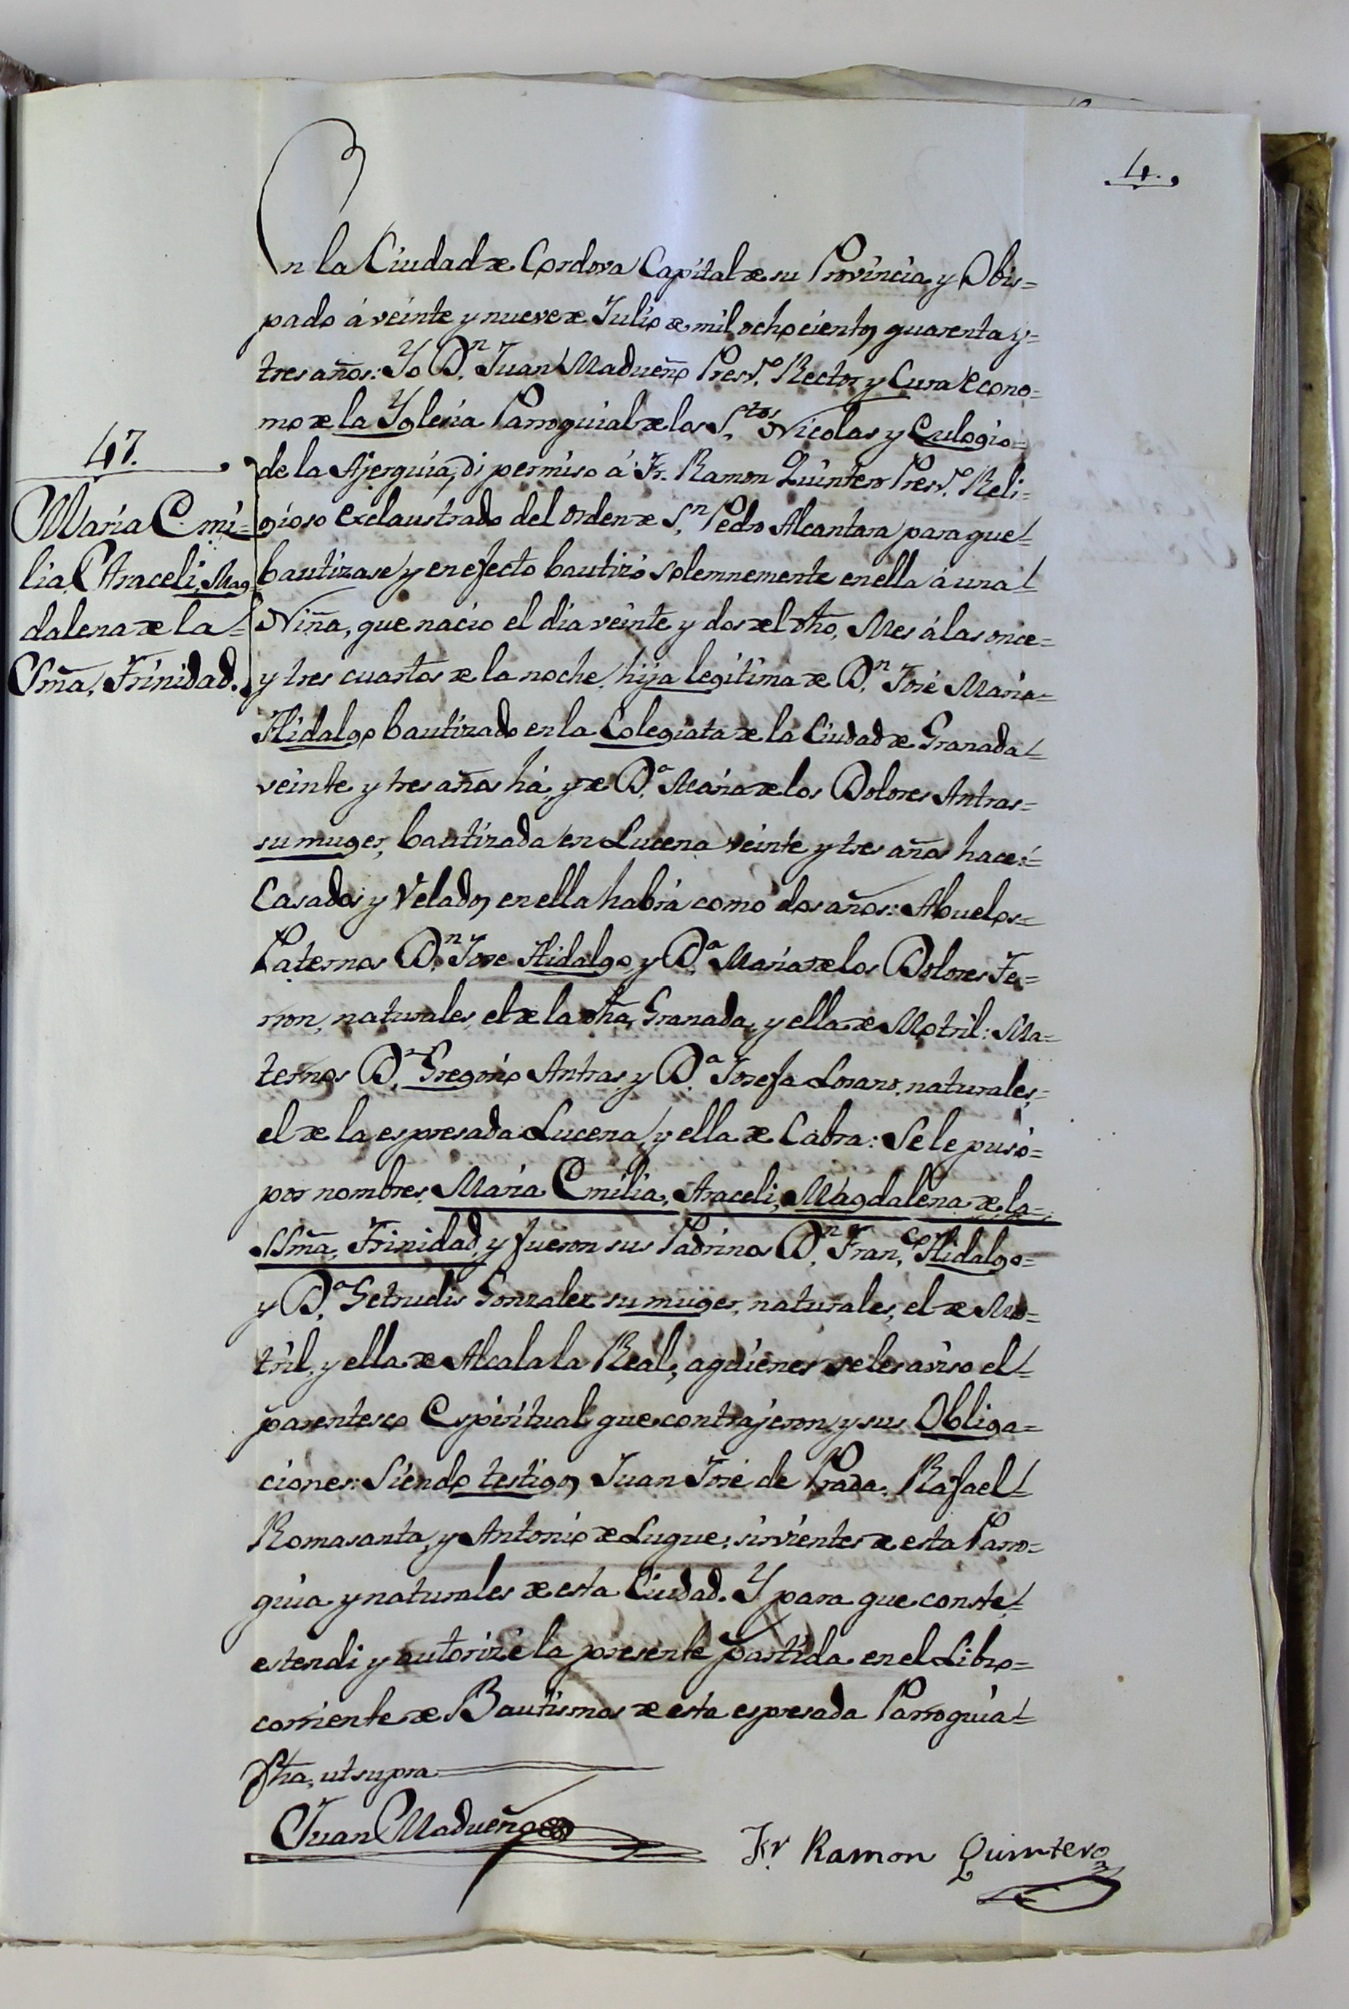 4.
En la Ciudad de Cordova Capital de su Provincia y Obis=
pado á veinte y nueve de Julio de mil ochocientos quarenta y=
tres años: Yo Dn. Juan Madueño Presb.o Rector y Cura Econo=
mo de la Yglesia Parroquial de los S.tos Nicolas y Eulogio=
de la Ajerquia, di permiso á Fr. Ramon Quintero Presb.o Reli=
gioso exclaustrado del orden de S.n Pedro Alcantara para que=
bautizase y en efecto bautizó solemnemente en ella á una=
Niña, que nació el dia veinte y dos del dho. Mes á las once=
y tres cuartos de la noche, hija legitima de D.n José Maria=
Hidalgo bautizado en la Colegiata de la Ciudad de Granada=
veinte y tres años há, y de D.a Maria de los Dolores Antras=
su muger, bautizada en Lucena veinte y tres años hace:=
Casados y Velados en ella habrá como dos años: Abuelos=
Paternos D.n Jose Hidalgo y D.a Maria de los Dolores Fe=
rron, naturales, el de la dha, Granada, y ella de Motril: Ma=
ternos D.n Gregorio Antras, y D.a Josefa Lozano, naturales,=
el de la espresada Lucena, y ella de Cabra: Se le puso=
por nombres, Maria Emilia, Araceli, Magdalena de la=
SSma, Trinidad, y fueron sus Padrinos D.n Fran.co Hidalgo=
y D.a Getrudis Gonzalez su muger, naturales, el de Mo=
tril, y ella de Alcala la Real, a quienes se les aviso el=
parentesco Espiritual que contrajeron y sus Obliga=
ciones: Siendo testigos Juan José de Prada, Rafael=
Romasanta, y Antonio de Luque, sirvientes de esta Parro=
quia y naturales de esta Ciudad. Y para que conste,=
estendi y autorizé la presente partida en el Libro=
corriente de Bautismos de esta espresada Parroquia=
fha, ut supra
Juan Madueño
Fr Ramon Quintero
47.
Maria Emi=
lia, Araceli, Mag
dalena de la=
SSma, Trinidad.